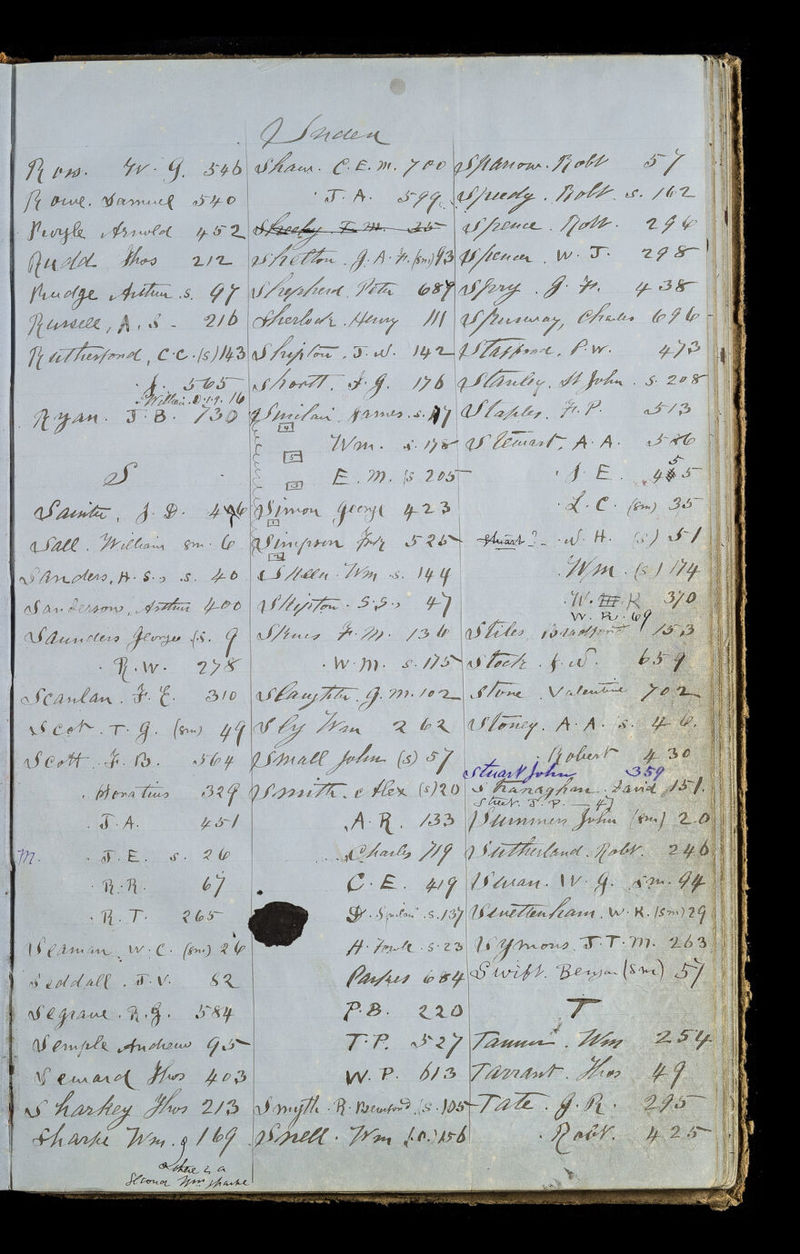 Index
Ross. W. G. 546
Rowe. Samuel 540
Arnold 452
Rudd Thos 212
Rudge Arthur .s. 97
Russell, A. S. 216
Rutherford, C. C. (s) 143
J. 565
William. 16
Ryan. J. B. 730
S
Sainter, J. D.
Sall. William sm. 6
Sanders, H. S. s. 40
Sanderson, Arthur 400
Saunders George (s. 9
R. W. 278
Scanlan. F. E. 310
Scot. T. G. (sm) 49
Scott. F. B. 564
Horatius 329
J. A. 451
M. J. E. s. 26
R. R. 67
R. T. 265
Seaman. W. C. (sm) 26
Seddall. J. V. 82
Segrave. R. G. 584
Semple Andrew 95
Seward Thos 403
Sharkey Thos 213
Sharpe Wm. 169
there is a
second Wm Sharpe
Shaw. C. E. M. 700
J. A. 599
Sheehy T. M. 35
Shelton. J. A. F. (sm) 93
Shepherd Peter 689
Sherlock. Henry 111
Shipton. J. W. 142
Shortt. J. G. 176
Sinclair. James. s. 17
4
Wm. s. 178
5
E. M. (s 205
3
Simon George 423
Simpson 525
Skeen Wm s. 144
Skipton. S. S. 47
Skues F. M. 136
W. M. s. 175
Slaughter. G. M. 102
Sly Wm 262
Small John (s) 57
Smith. Alex (s) 20
A. R. 133
Charles 719
C. E. 419
D. s. 137
H. s. 23
Parkes 684
P. B. 220
T. P. 527
W. P. 613
Smyth. R. (s. 105
Snell. Wm 156
Sparrow. Robt 57
Speedy. Robt. s. 162
Spence. Robt. 296
Spencer. W. J. 298
Spry. J. F. 438
Spurway, Charles 696
Stafford. P. W. 473
Stanley. St John. s. 208
Staples. F. P. 513
Stewart. A. A. 526
J. E. 455
L. C. (sm) 35
Stuart? W. H. (s) 51
Wm. (s) 174
W. R 370
W. R. 69
Stiles Bradford 153
Stock. J. W. 659
Stone. Valentine 702
Stoney. A. A. s. 46.
Robert 430
Stuart John 359
Stranaghan. David 151.
Street. J. P. 47
Summers John (sm) 20
Sutherland. Robt. 246
Swan. W. G. sm. 94
Swettenham. W. K. (sm) 29
Symons. J. T. M. 263
Swift. Benjn (sm) 57
T
Tanner. Wm 254
Tarrant. Thos 49
Tate. G. R. 295
Robt. 425